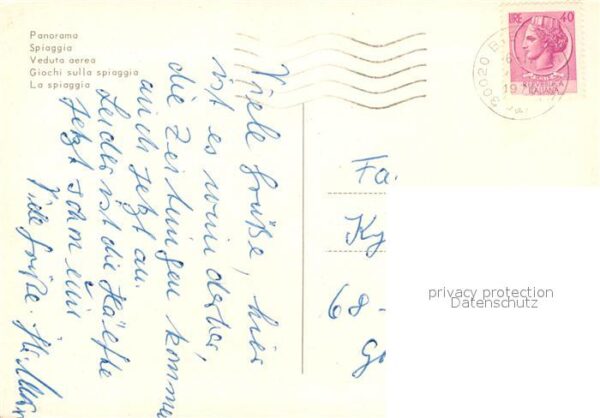 Panorama
Spiaggia
Veduta aerea
Giochi sulla spiaggia
La spiaggia
LIRE 40
REPVBBLICA
ITALIANA
Viele Grüße, hier
ist es wunderbar,
die Zeitungen komme
auch jetzt an.
Leider ist die Hälfte
jetzt schon um
Viele Grüße.
Fa
Ky
68-
privacy protection
Datenschutz